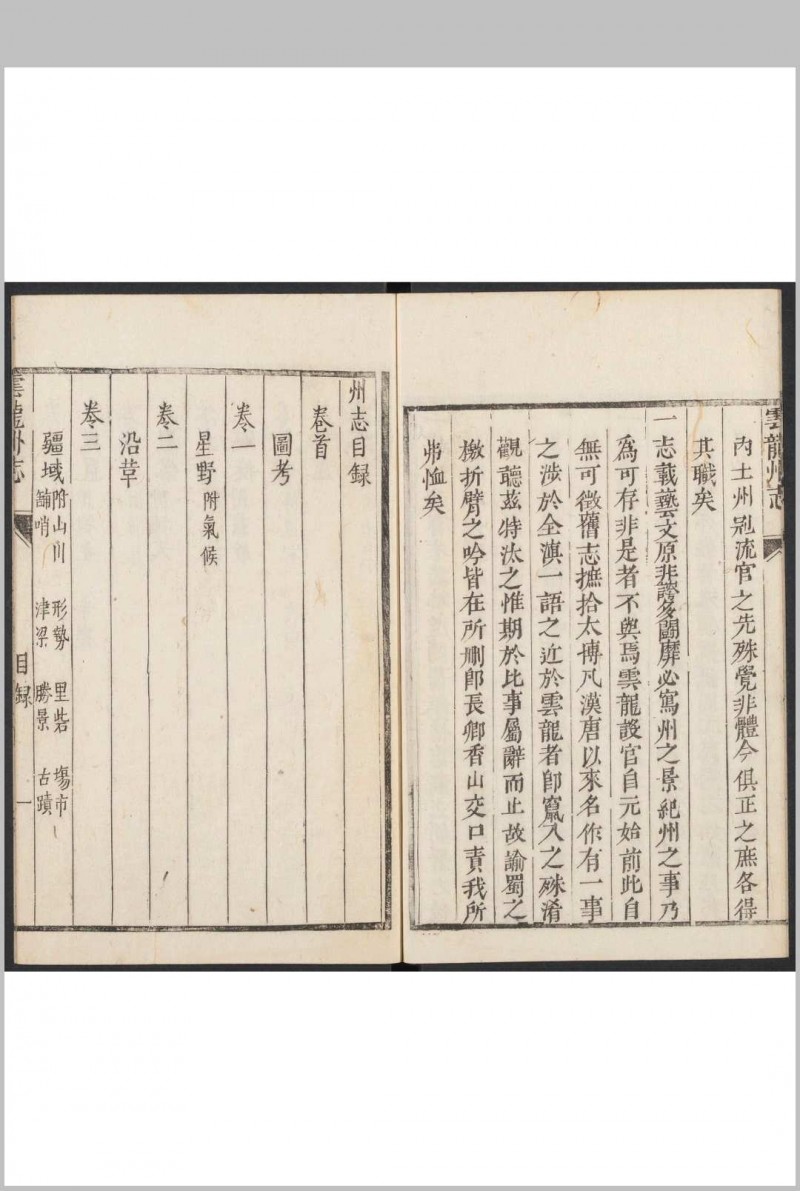 雲龍州志
內土州冠流官之先殊覺非體今俱正之庶各得
其職矣
一志載藝文原非誇多鬪靡必寫州之景紀州之事乃
爲可存非是者不與焉雲龍設官自元始前此自
無可徵舊志摭拾太博凡漢唐以來名作有一事
之涉於全滇一語之近於雲龍者卽竄入之殊淆
觀聽茲特汰之惟期於比事屬辭而止故諭蜀之
檄折臂之吟皆在所刪卽長卿香山交口責我所
弗恤矣
州志目録
卷首
圖考
卷一
星野附氣候
卷二
沿革
卷三
疆域附山川 形勢 里砦 塲市
舖哨 津梁 勝景 古蹟
雲龍州志 目録 一